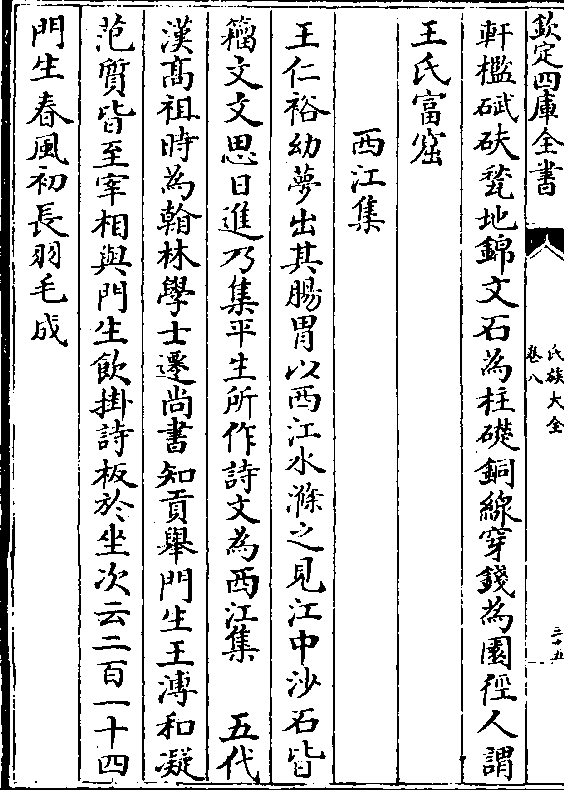 欽定四庫全書
氏族大全
卷八
三十五
軒檻碔砆甃地錦文石為柱礎銅線穿錢為園徑人謂
王氏富窟
西江集
王仁裕幼夢出其腸胃以西江水滌之見江中沙石皆
籀文文思日進乃集平生所作詩文為西江集　五代
漢髙祖時為翰林學士遷尚書知貢舉門生王溥和凝
范質皆至宰相與門生飲掛詩板於坐次云二百一十四
門生春風初長羽毛成